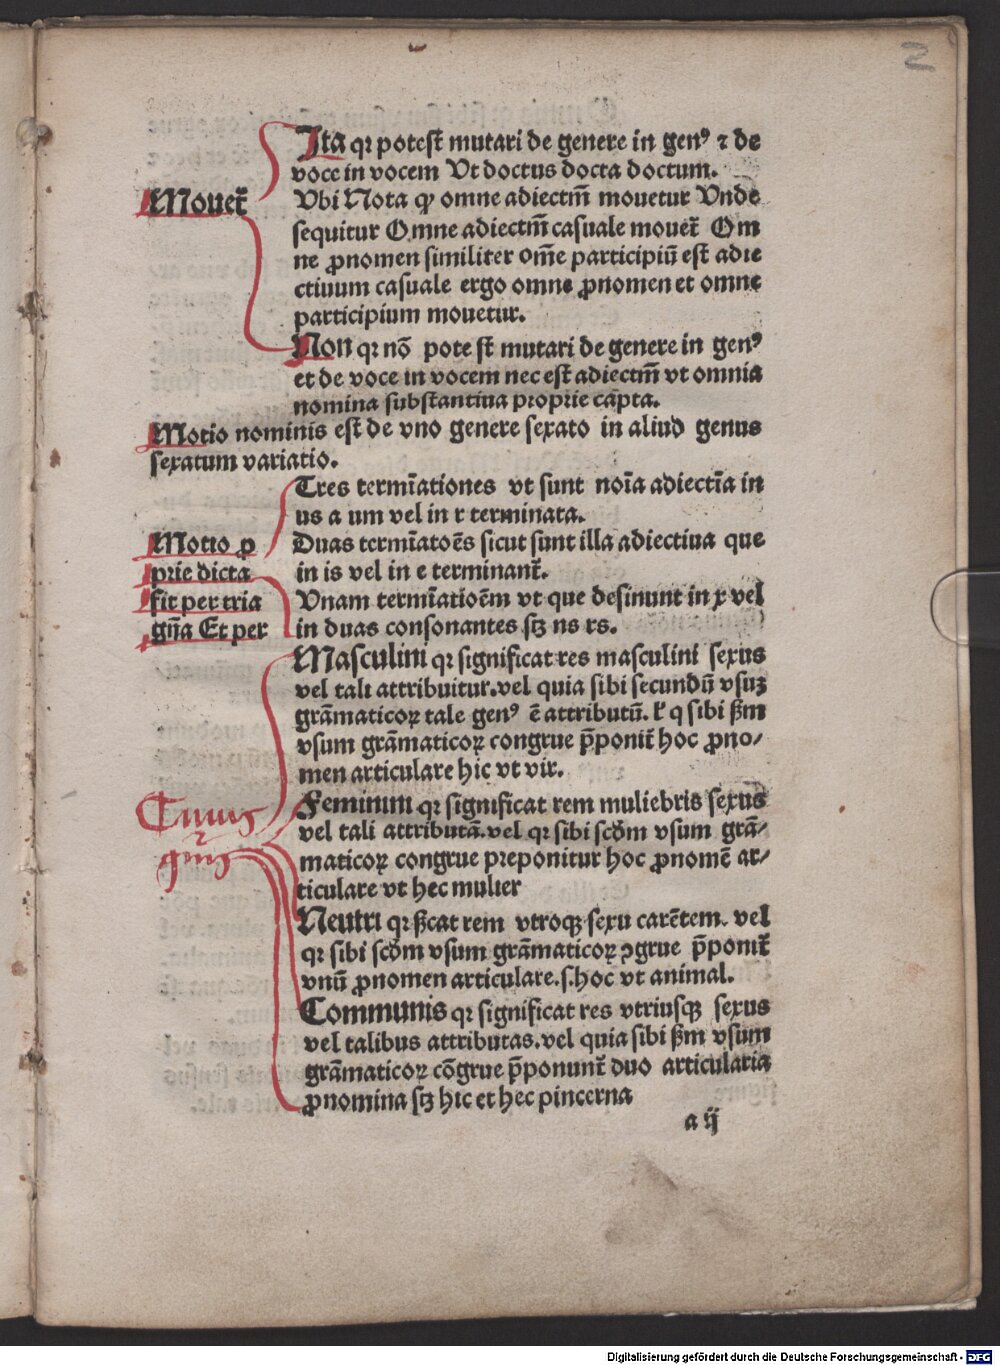 2
Ita qꝛ potest mutari de genere in genꝰ ⁊ de
voce in vocem Ut doctus docta doctum.
Mouet᷑
Ubi Nota ꝙ omne adiectm̄ mouetur Unde
sequitur Omne adiectm̄ casuale mouet᷑ Om
ne ꝓnomen similiter om̄e participiū est adie
ctiuum casuale ergo omne ꝓnomen et omne
participium mouetur.
Non qꝛ nō pote st mutari de genere in genꝰ
et de voce in vocem nec est adiectm̄ vt omnia
nomina substantiua proprie cāpta.
Motio nominis est de vno genere sexato in aliud genus
sexatum variatio.
Tres termīationes vt sunt noīa adiectīa in
us a um vel in r terminata.
Motio ꝓ
Duas termīatoēs sicut sunt illa adiectiua que
prie dicta
in is vel in e terminant᷑.
fit per tria
Unam termīatioēm vt que desinunt in x vel
gn̄a Et per
in duas consonantes sꝫ ns rs.
Masculini qꝛ significat res masculini sexus
vel tali attribuitur. vel quia sibi secundū vsuꝫ
grāmaticoꝝ tale genꝰ ē attributū. ł q sibi ẜm
vsum grāmaticoꝝ congrue p̄ponit᷑ hoc ꝓno/
men articulare hic vt vir.
Cuius
Feminini qꝛ significat rem muliebris sexus
vel tali attributā. vel qꝛ sibi scdm vsum grā/
gn̄is
maticoꝝ congrue preponitur hoc ꝓnomē ar/
ticulare vt hec mulier
Neutri qꝛ ẜcat rem vtroqꝫ sexu carētem. vel
qꝛ sibi scdm vsum grāmaticoꝝ ꝯgrue p̄ponit᷑
vnū ꝓnomen articulare. s. hoc vt animal.
Communis qꝛ significat res vtriusqꝫ sexus
vel talibus attributas. vel quia sibi ẜm vsum
grāmaticoꝝ cōgrue p̄ponunt᷑ duo articularia
ꝓnomina sꝫ hic et hec pincerna
a ij
Digitalisierung gefördert durch die Deutsche Forschungsgemeinschaft - DFG